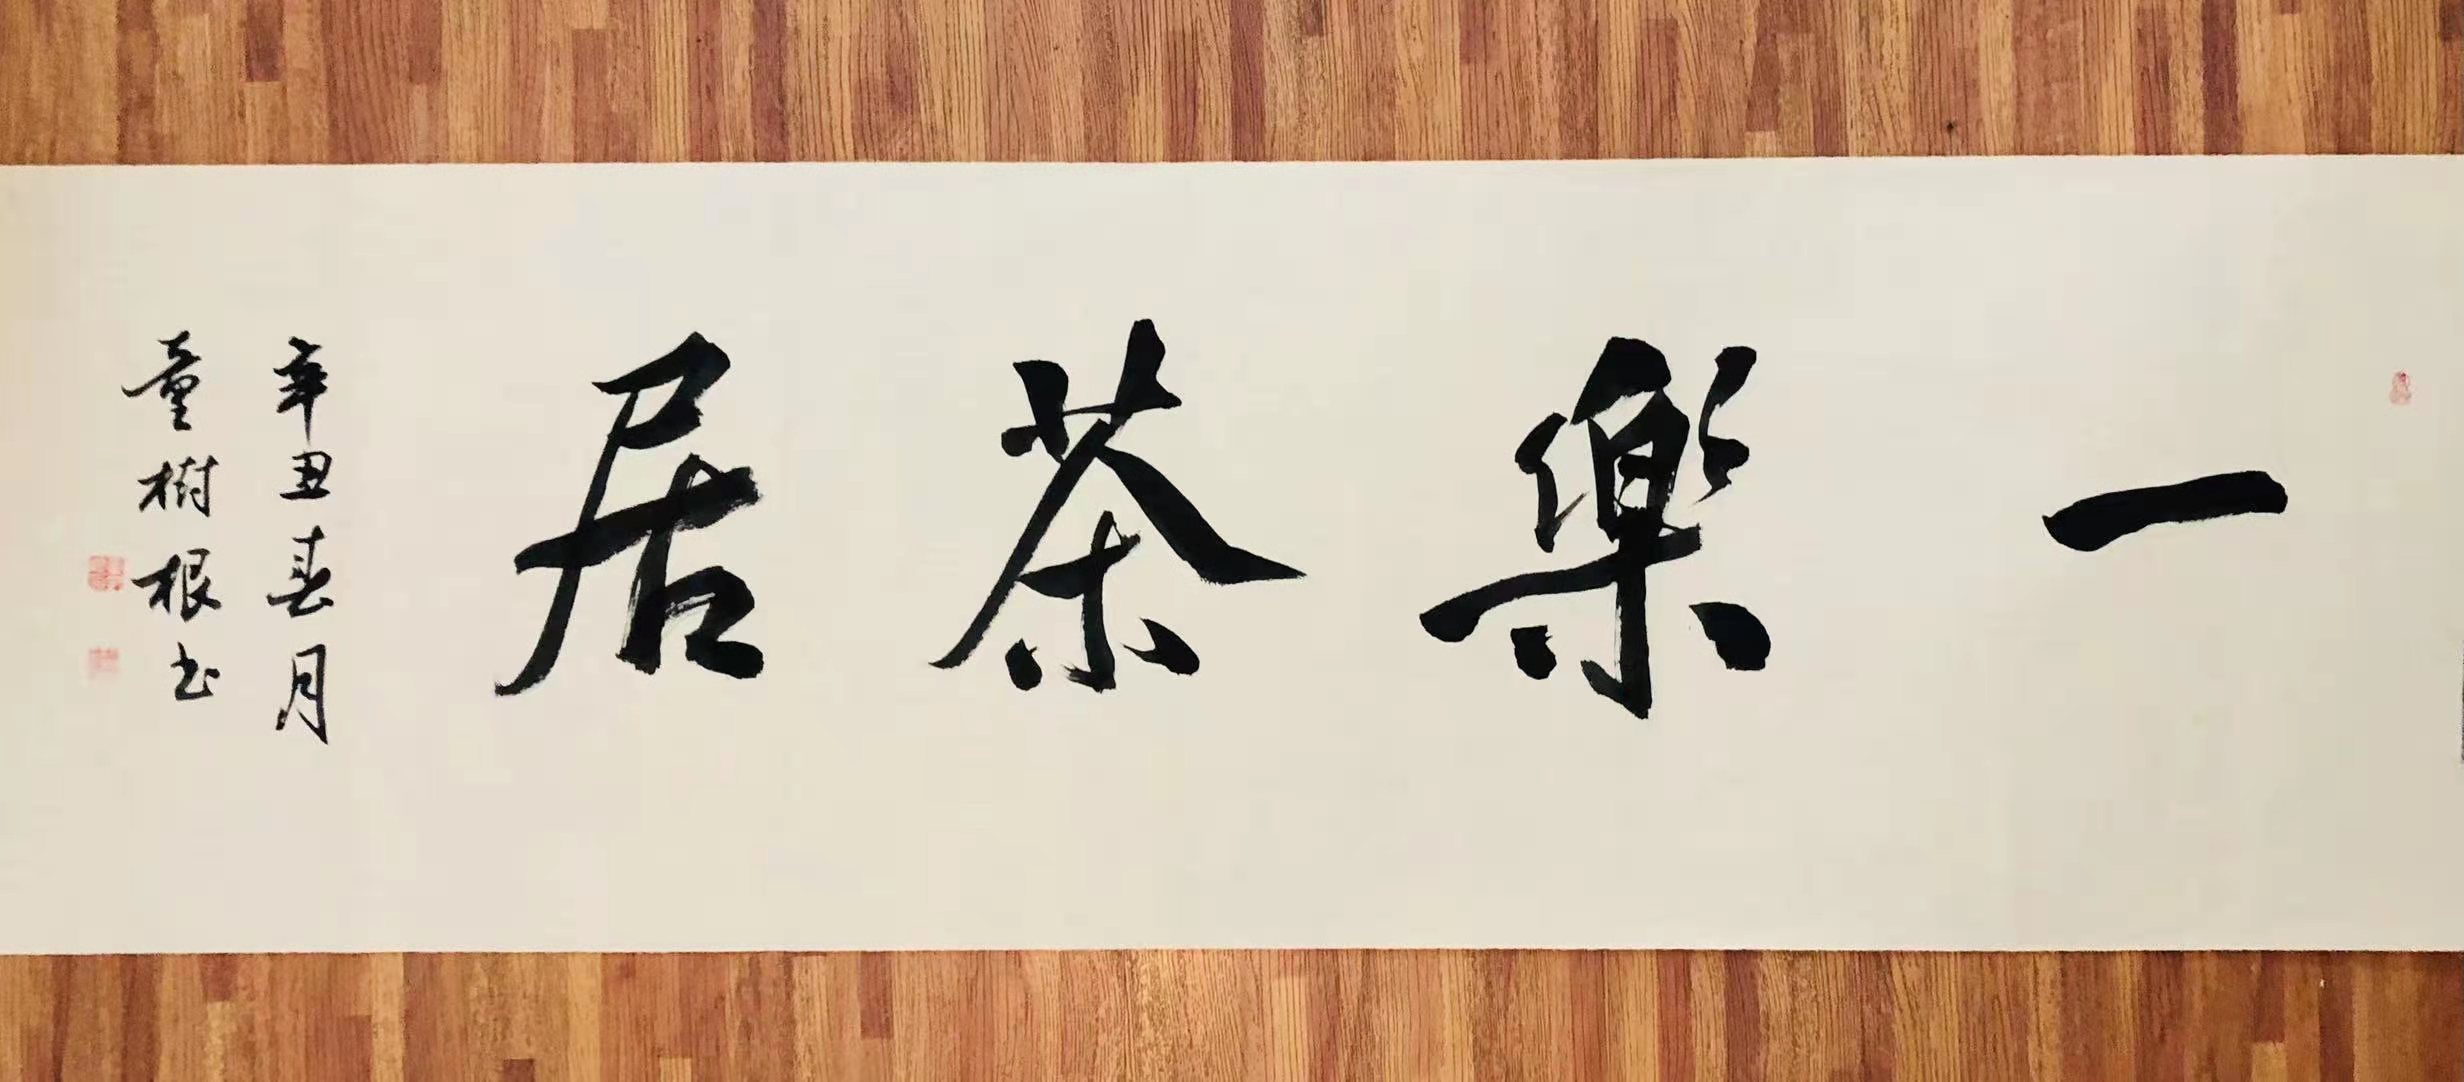 一樂茶居
辛丑春月
童樹根书